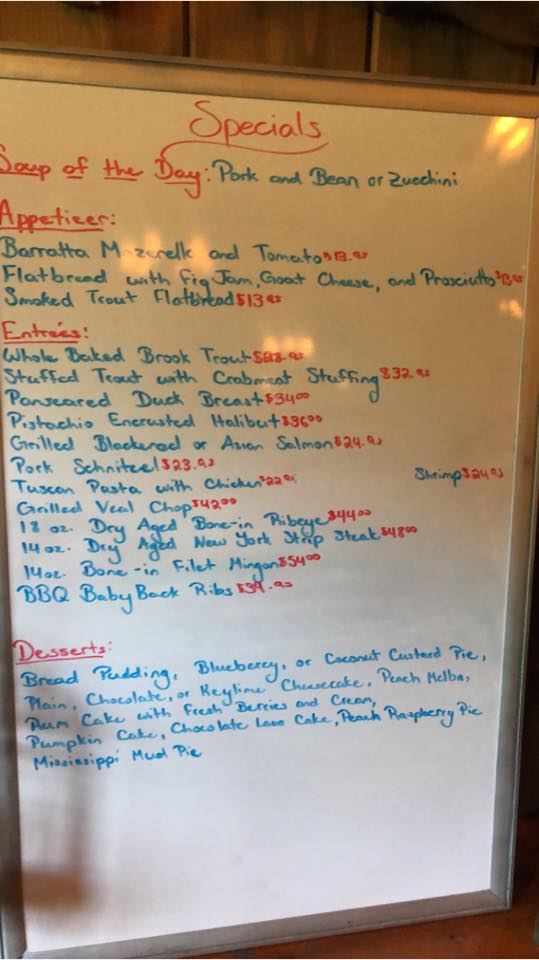 Specials
Soup of the Day: Pork and Bean or Zucchini
Appetizer:
Barratta Mozerella and Tomato $13.95
Flatbread with Fig Jam, Goat Cheese, and Prosciutto $13.95
Smoked Trout Flatbread $13.95
Entreés:
Whole Baked Brook Trout
Stuffed Trout with Crabmeat Stuffing $32.95
Panseared Duck Breast $34.00
Pistachio Encrusted Halibut $36.00
Grilled Blackened or Asian Salmon $24.95
Pork Schnitzel $23.95
Tuscan Pasta with Chicken $22.95 Shrimp $24.95
Grilled Veal Chop $42.00
18 oz. Dry Aged Bone-in Ribeye $44.00
14 oz. Dry Aged New York Strip Steak $48.00
14oz. Bone-in Filet Mingon $54.00
BBQ Baby Back Ribs
Desserts:
Bread Pudding, Blueberry, or Coconut Custard Pie,
Plain, Chocolate, or Keylime Cheesecake, Peach Melba,
Rum Cake with Fresh Berries and Cream,
Pumpkin Cake, Chocolate Lava Cake, Peach Raspberry Pie
Mississippi Mud Pie